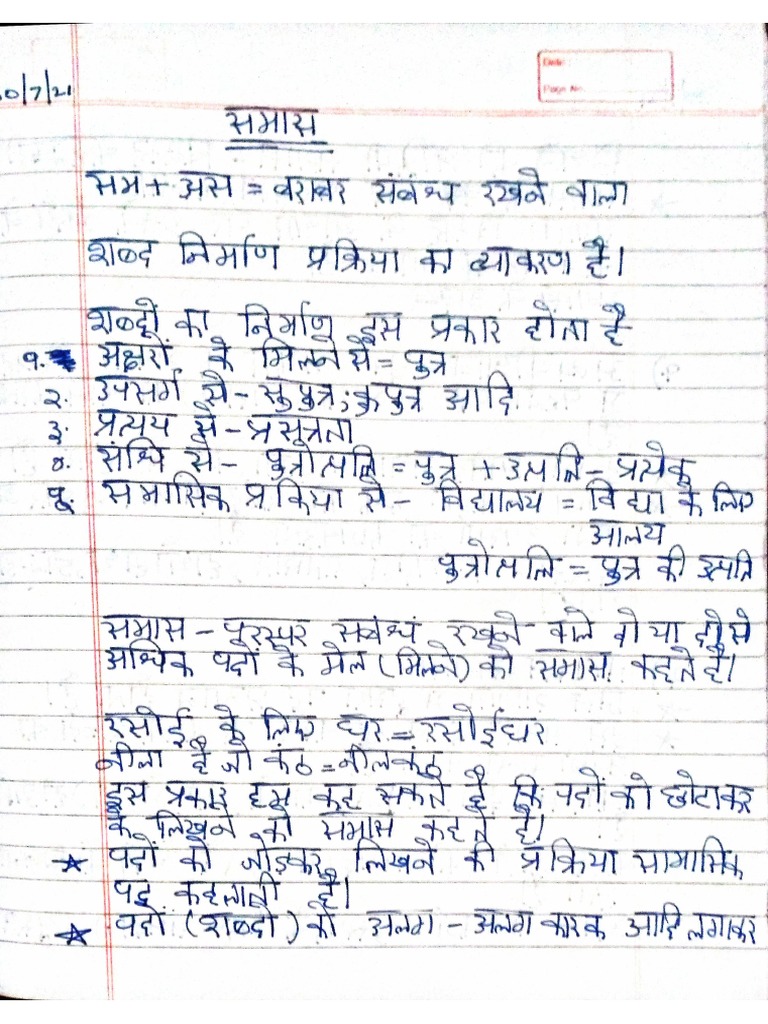 0/7/21
Date:
Page No.
समास
सम + अस = बराबर संबंध रखने वाला
शब्द निर्माण प्रक्रिया का व्याकरण है।
शब्दों का निर्माण इस प्रकार होता है
१. अक्षरों के मिलने से = पुत्र
२. उपसर्ग से - सुपुत्र, कुपुत्र आदि
३. प्रत्यय से -
४. संधि से - पुत्रोत्पत्ति = पुत्र + उत्पत्ति - प्रत्येक
५. समासिक प्रकिया से - विद्यालय = विद्या के लिए
आलय
पुत्रोत्पत्ति = पुत्र की उत्पत्ति
समास - परस्पर संबंध रखने वाले दो या दो से
अधिक पदों के मेल (मिलने) को समास कहते है।
रसोई के लिए घर = रसोईघर
नीला है जो कंठ = नीलकंठ
इस प्रकार हम कह सकते है कि पदों को छोटाकर
के लिखने को समास कहते है।
★ पदों को जोड़कर लिखने की प्रक्रिया सामासिक
पद कहलाती है।
★ पदों (शब्दों) को अलग - अलग कारक आदि लगाकर